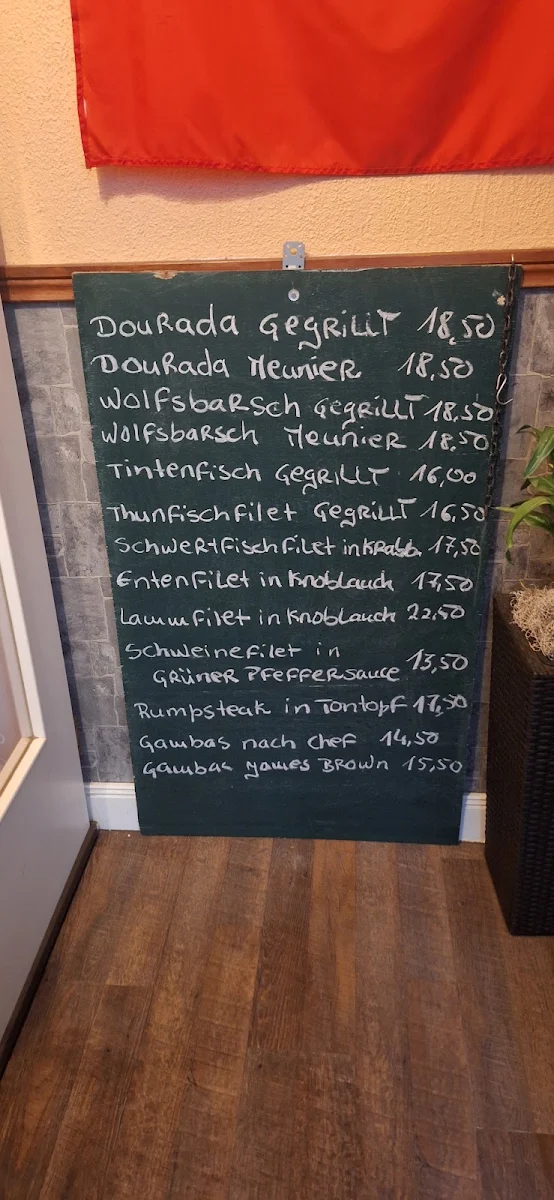 Dourada Gegrillt 18,50
Dourada Meunier 18,50
Wolfsbarsch Gegrillt 18,50
Wolfsbarsch Meunier 18,50
Tintenfisch Gegrillt 16,00
Thunfischfilet Gegrillt 16,50
Schwertfischfilet in 17,50
Entenfilet in Knoblauch 17,50
Lammfilet in Knoblauch 22,50
Schweinefilet in
Grüner Pfeffersauce 13,50
Rumpsteak in Tontopf 17,50
Gambas nach chef 14,50
Gambas James Brown 15,50